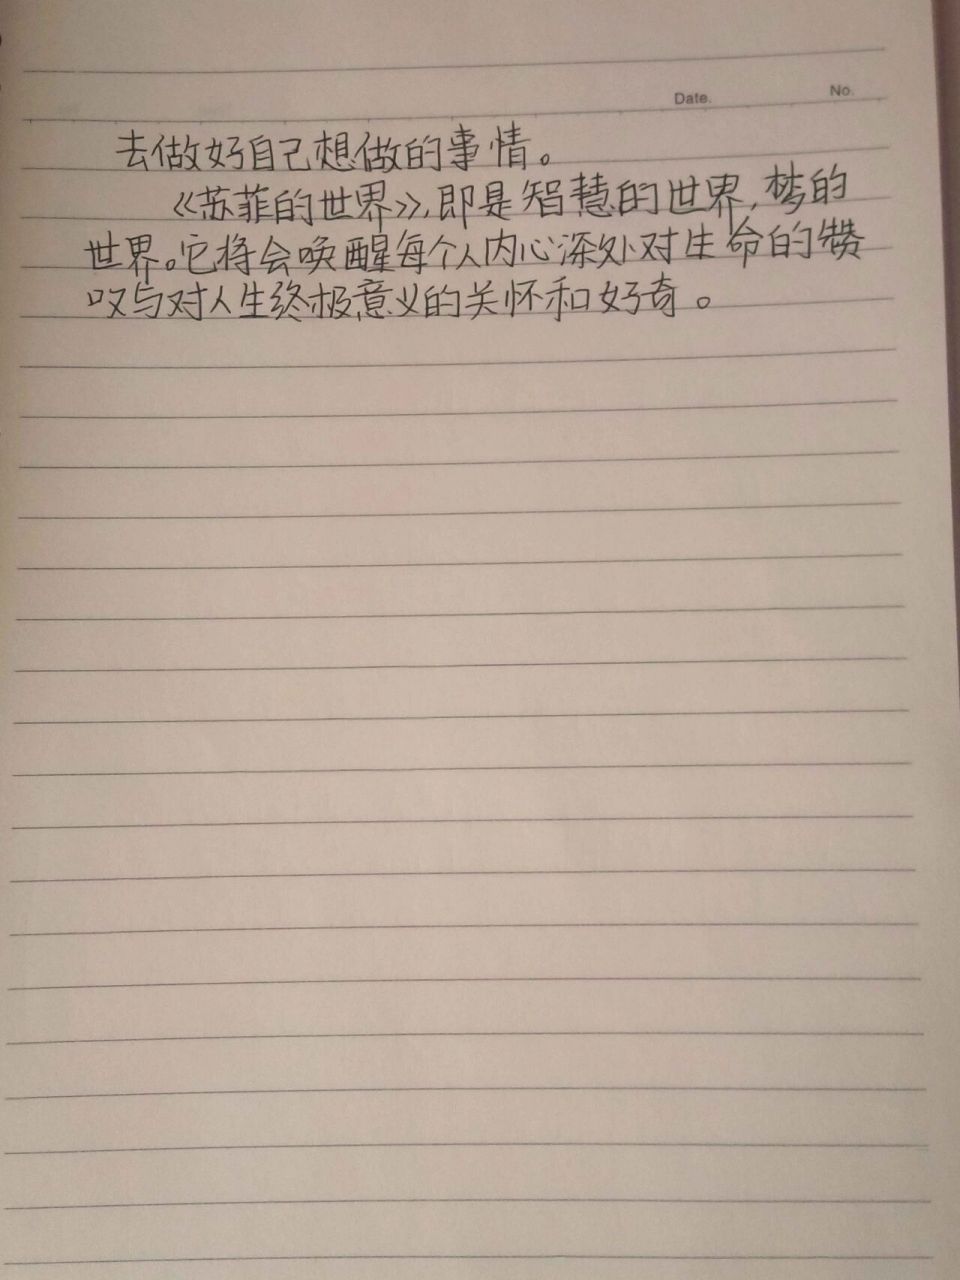 Date.
No.
去做好自己想做的事情。
《苏菲的世界》,即是智慧的世界,梦的
世界。它将会唤醒每个人内心深处对生命的赞
叹与对人生终极意义的关怀和好奇。